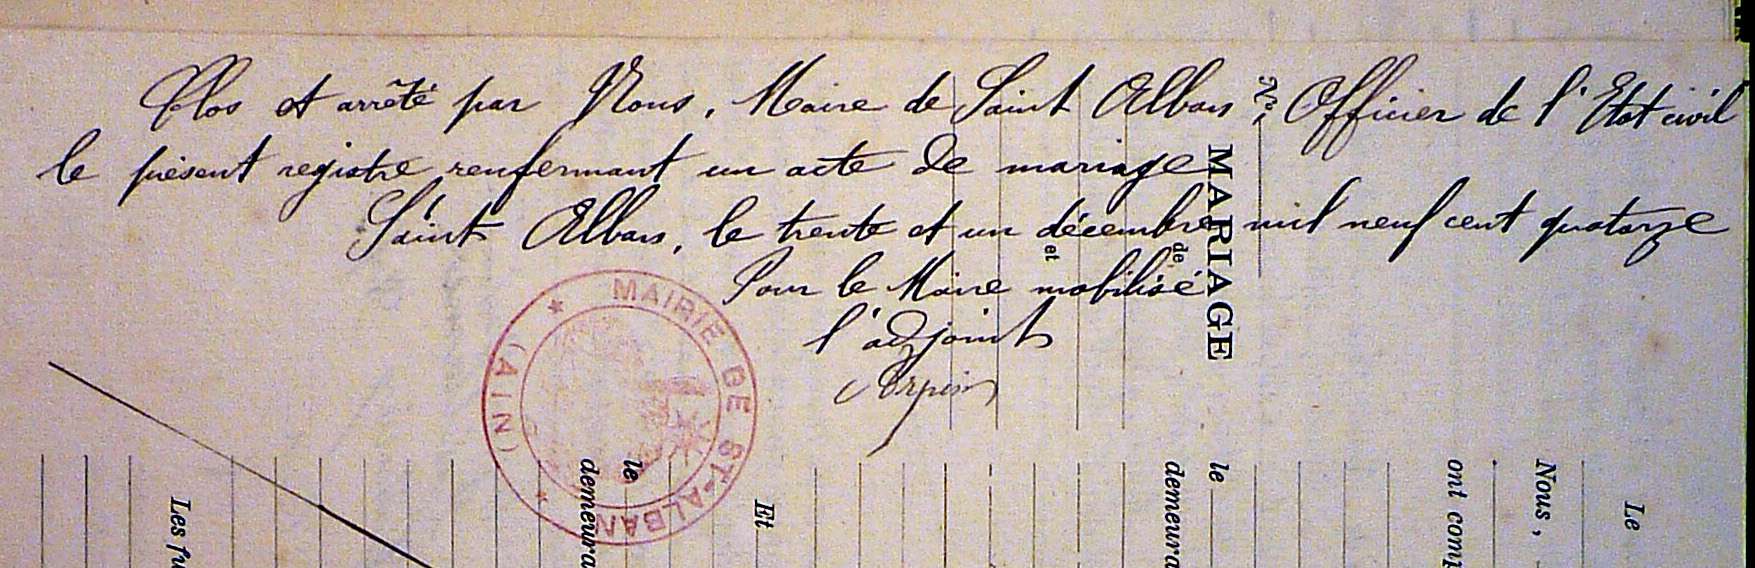 Clos et arrêté par Nous, Maire de Saint Alban, Officier de l'Etat civil
le présent registre renfermant un acte de mariage
Saint Alban, le trente et un décembre mil neuf cent quatorze
Pour le Maire mobilisé
l'adjoint
Arpin
MAIRIE DE ST-ALBAN
(AIN)
N°
MARIAGE
de
et
Le
Nous,
ont comp
le
demeura
Et
le
demeura
Les fu